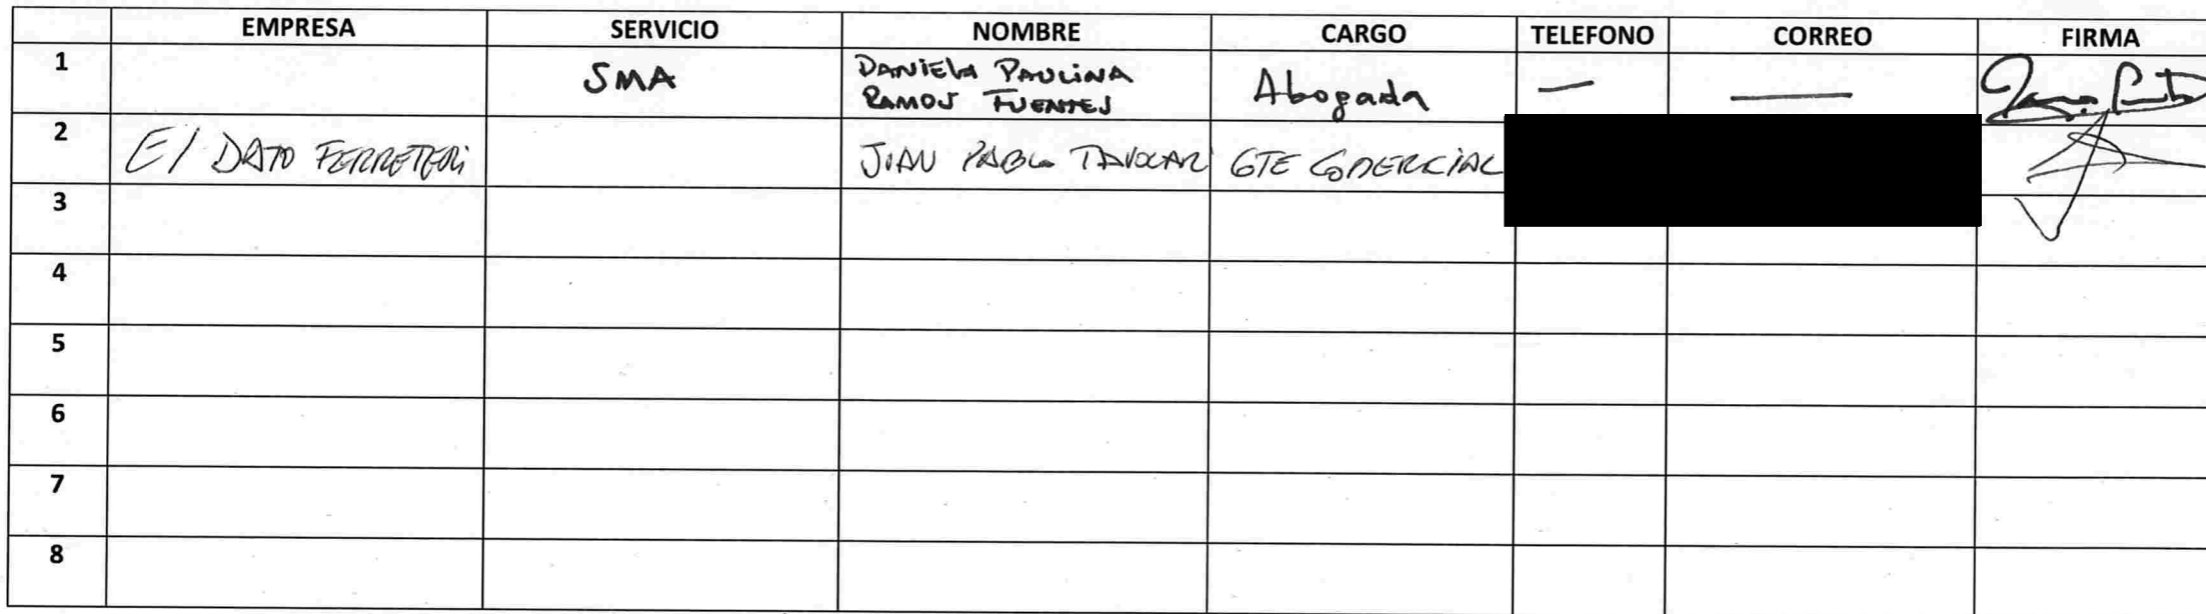 EMPRESA SERVICIO NOMBRE CARGO TELEFONO CORREO FIRMA
1 SMA DANIELA PAULINA Abogada — —
RAMOS FUENTES
2 El DATO FERRETERi JUAN PABLO TAVOLARI GTE COMERCIAL
3
4
5
6
7
8